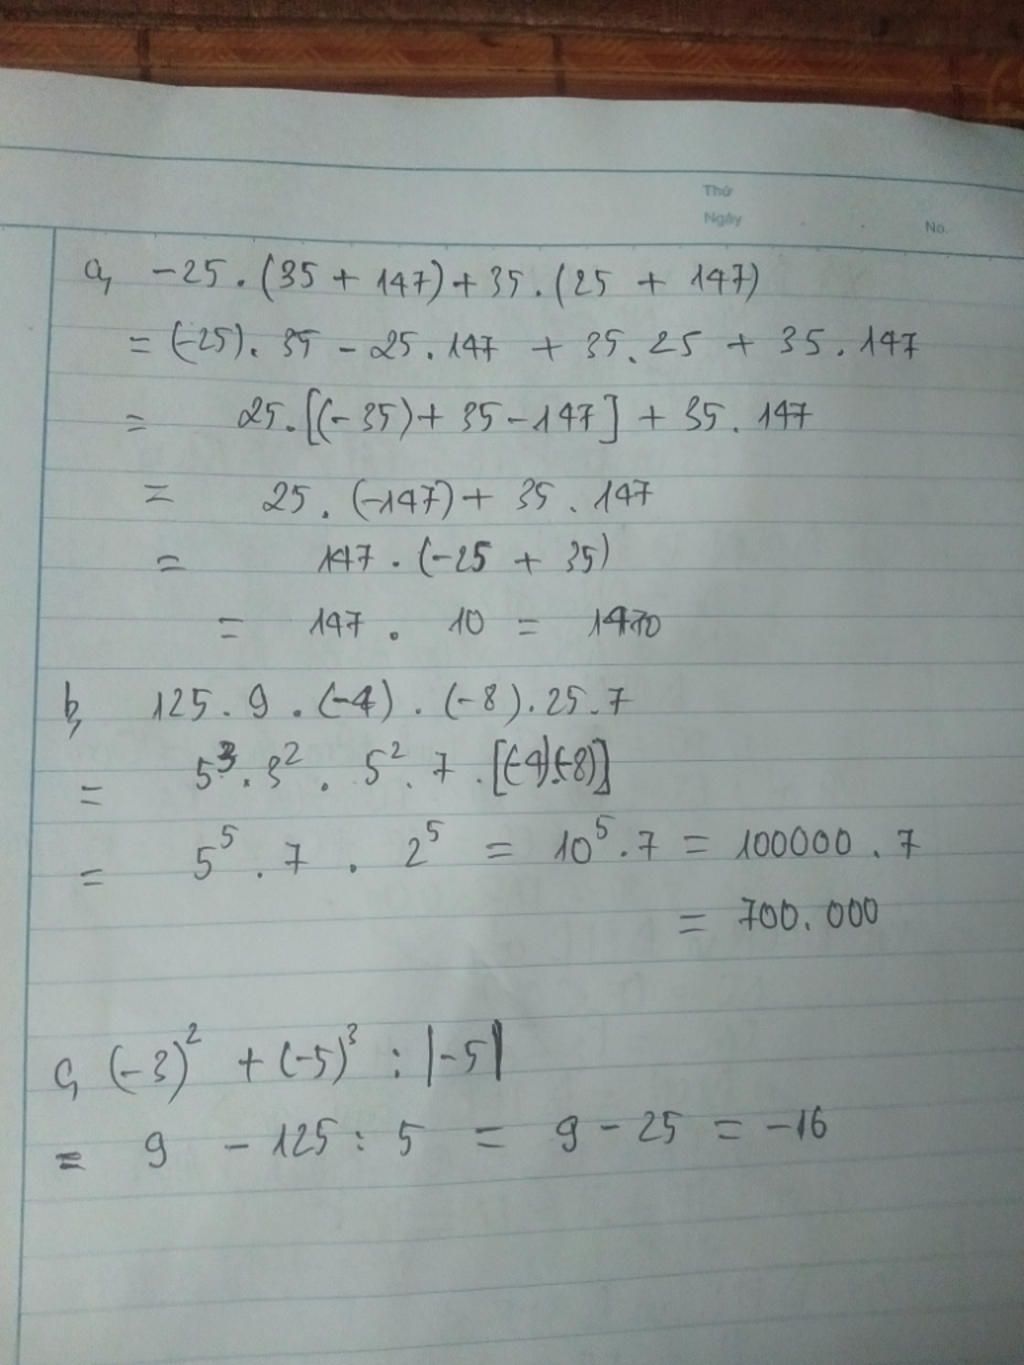 Thứ
Ngày
No.
a, -25 . (35 + 147) + 35 . (25 + 147)
= (-25) . 35 - 25 . 147 + 35 . 25 + 35 . 147
= 25 . [(-35) + 35 - 147] + 35 . 147
= 25 . (-147) + 35 . 147
= 147 . (-25 + 35)
= 147 . 10 = 1470
b, 125 . 9 . (-4) . (-8) . 25 . 7
= 5³ . 3² . 5² . 7 . [(-4).(-8)]
= 5⁵ . 7 . 2⁵ = 10⁵ . 7 = 100000 . 7
= 700.000
c, (-3)² + (-5)³ : |-5|
= 9 - 125 : 5 = 9 - 25 = -16